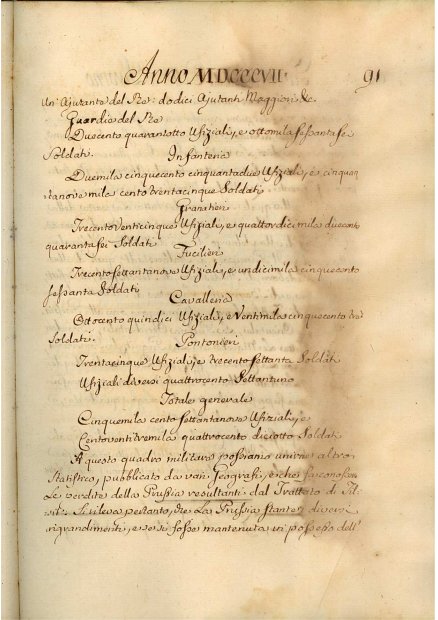 Anno MDCCCVII
91
Un' Ajutante del Re: dodici Ajutanti Maggiori &c.
Guardia del Re
Duecento quarantotto Ufiziali, e ottomila sessantasei
Soldati.
Infanteria
Duemila cinquecento cinquantadue Ufiziali, e cinquan
tanove mila cento trentacinque Soldati
Granatieri
Trecento Venticinque Ufiziali, e quattordici mila duecento
quarantasei Soldati
Fucilieri
Trecento settantanove Ufiziali, e undicimila cinquecento
sessanta Soldati
Cavalleria
Ottocento quindici Ufiziali, e Ventimila cinquecento tre
Soldati.
Pontonieri
Trentacinque Ufiziali, e trecento settanta Soldati
Ufiziali diversi quattrocento Settantuno
Totale generale
Cinquemila cento settantanove Ufiziali, e
Centoventitremila quattrocento diciotto Soldati
A questo quadro militare possiamo unirne altro
Statistico, pubblicato da vari Geografi, e che fa conoscere
Le perdite della Prussia resultanti dal Trattato di Til
sit: pertanto, che La Prussia stante i diversi
ingrandimenti, e se si fosse mantenuta in possesso dell'